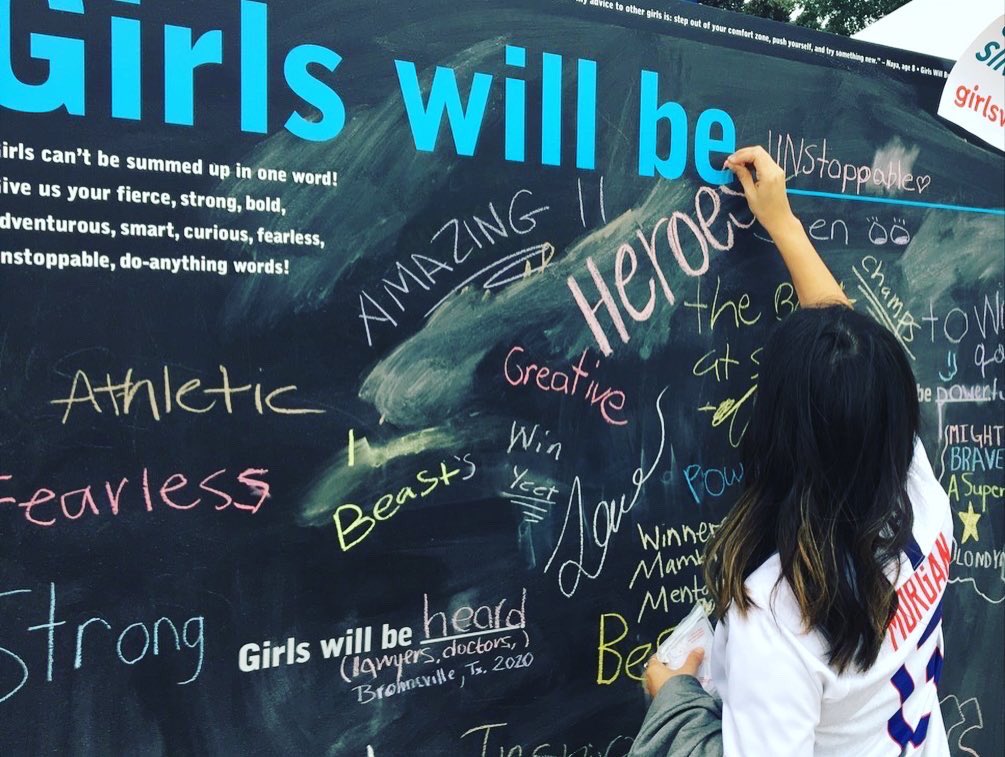 my advice to other girls is: step out of your comfort zone, push yourself, and try something new." – Maya, age 8 • Girls Will Be
Girls will be
girlsw
irls can't be summed up in one word!
ive us your fierce, strong, bold,
dventurous, smart, curious, fearless,
nstoppable, do-anything words!
UNstoppable
AMAZING !!
Heroes
een
Champs
the Be
to Wi
at s
Creative
Athletic
be powerfu
Win
Yeet
MIGHT
BRAVE
A Super
LONDYN
Fearless
Beasts
Love
Pow
Winner
Mamb
Menta
Strong
Girls will be heard
(lawyers, doctors,)
Brownsville, Tx. 2020
Be
MORGAN
Inspi